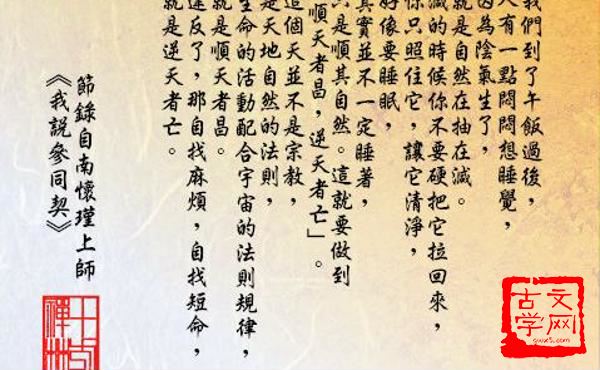 我們到了午飯過後，
人有一點悶悶想睡覺，
因為陰氣生了，
就是自然在抽在減。
減的時候你不要硬把它拉回來，
你只照住它，讓它清淨，
好像要睡眠，
其實並不一定睡著，
只是順其自然。這就要做到
順天者昌，逆天者亡」。
這個天並不是宗教，
是天地自然的法則，
生命的活動配合宇宙的法則規律，
就是順天者昌。
違反了，那自找麻煩，自找短命，
就是逆天者亡。
節錄自南懷瑾上師
《我說參同契》
古文学网